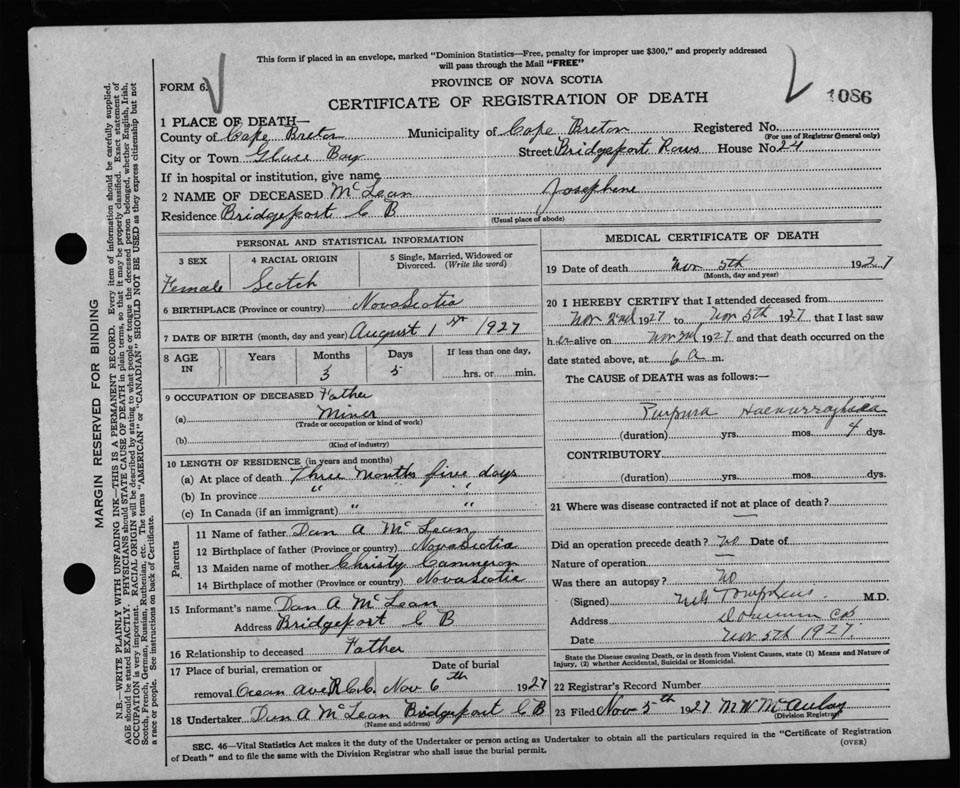 This form if placed in an envelope, marked "Dominion Statistics—Free, penalty for improper use $300," and properly addressed
will pass through the Mail "FREE"
FORM 6.
PROVINCE OF NOVA SCOTIA
CERTIFICATE OF REGISTRATION OF DEATH
1086
1 PLACE OF DEATH—
County of Cape Breton Municipality of Cape Breton Registered No.
(For use of Registrar General only)
City or Town Glace Bay Street Bridgeport Rows House No. 24
If in hospital or institution, give name
2 NAME OF DECEASED McLean Josephine
Residence Bridgeport C B
(Usual place of abode)
PERSONAL AND STATISTICAL INFORMATION
3 SEX 4 RACIAL ORIGIN 5 Single, Married, Widowed or
Divorced. (Write the word)
Female Scotch
6 BIRTHPLACE (Province or country) Nova Scotia
7 DATE OF BIRTH (month, day and year) August 1st 1927
8 AGE IN Years Months Days If less than one day,
3 5 hrs. or min.
9 OCCUPATION OF DECEASED Father
(a) Miner
(Trade or occupation or kind of work)
(b)
(Kind of industry)
10 LENGTH OF RESIDENCE (in years and months)
(a) At place of death Three months five days
(b) In province " "
(c) In Canada (if an immigrant) " "
Parents
11 Name of father Dan A McLean
12 Birthplace of father (Province or country) Nova Scotia
13 Maiden name of mother Christy Cammeron
14 Birthplace of mother (Province or country) Nova Scotia
15 Informant's name Dan A McLean
Address Bridgeport C B
16 Relationship to deceased Father
17 Place of burial, cremation or Date of burial
removal. Ocean Ave R.C.C. Nov 6th 1927
18 Undertaker Dan A McLean Bridgeport C B
(Name and address)
MEDICAL CERTIFICATE OF DEATH
19 Date of death Nov 5th 1927
(Month, day and year)
20 I HEREBY CERTIFY that I attended deceased from
Nov 2nd 1927 to Nov 5th 1927 that I last saw
h er alive on 1927 and that death occurred on the
date stated above, at 6 a m.
The CAUSE of DEATH was as follows:—
Purpura
(duration) yrs. mos. 4 dys.
CONTRIBUTORY
(duration) yrs. mos. dys.
21 Where was disease contracted if not at place of death?
—
Did an operation precede death? No Date of
Nature of operation —
Was there an autopsy? No
(Signed) M.D.
Address Dominion CB
Date Nov 5th 1927.
State the Disease causing Death, or in death from Violent Causes, state (1) Means and Nature of
Injury, (2) whether Accidental, Suicidal or Homicidal.
22 Registrar's Record Number
23 Filed Nov 5th 1927 M W McAulay
(Division Registrar)
SEC. 46—Vital Statistics Act makes it the duty of the Undertaker or person acting as Undertaker to obtain all the particulars required in the "Certificate of Registration
of Death" and to file the same with the Division Registrar who shall issue the burial permit.
(OVER)
MARGIN RESERVED FOR BINDING
N.B.—WRITE PLAINLY WITH UNFADING INK—THIS IS A PERMANENT RECORD. Every item of information should be carefully supplied.
AGE should be stated EXACTLY. PHYSICIANS should STATE CAUSE OF DEATH in plain terms, so that it may be properly classified. Exact statement of
OCCUPATION is very important. RACIAL ORIGIN will be described by stating to what people or tongue the deceased person belonged, whether English, Irish,
Scotch, French, German, Russian, Ruthenian, etc. The terms "AMERICAN" or "CANADIAN" SHOULD NOT BE USED as they express citizenship but not
a race or people. See instructions on back of Certificate.